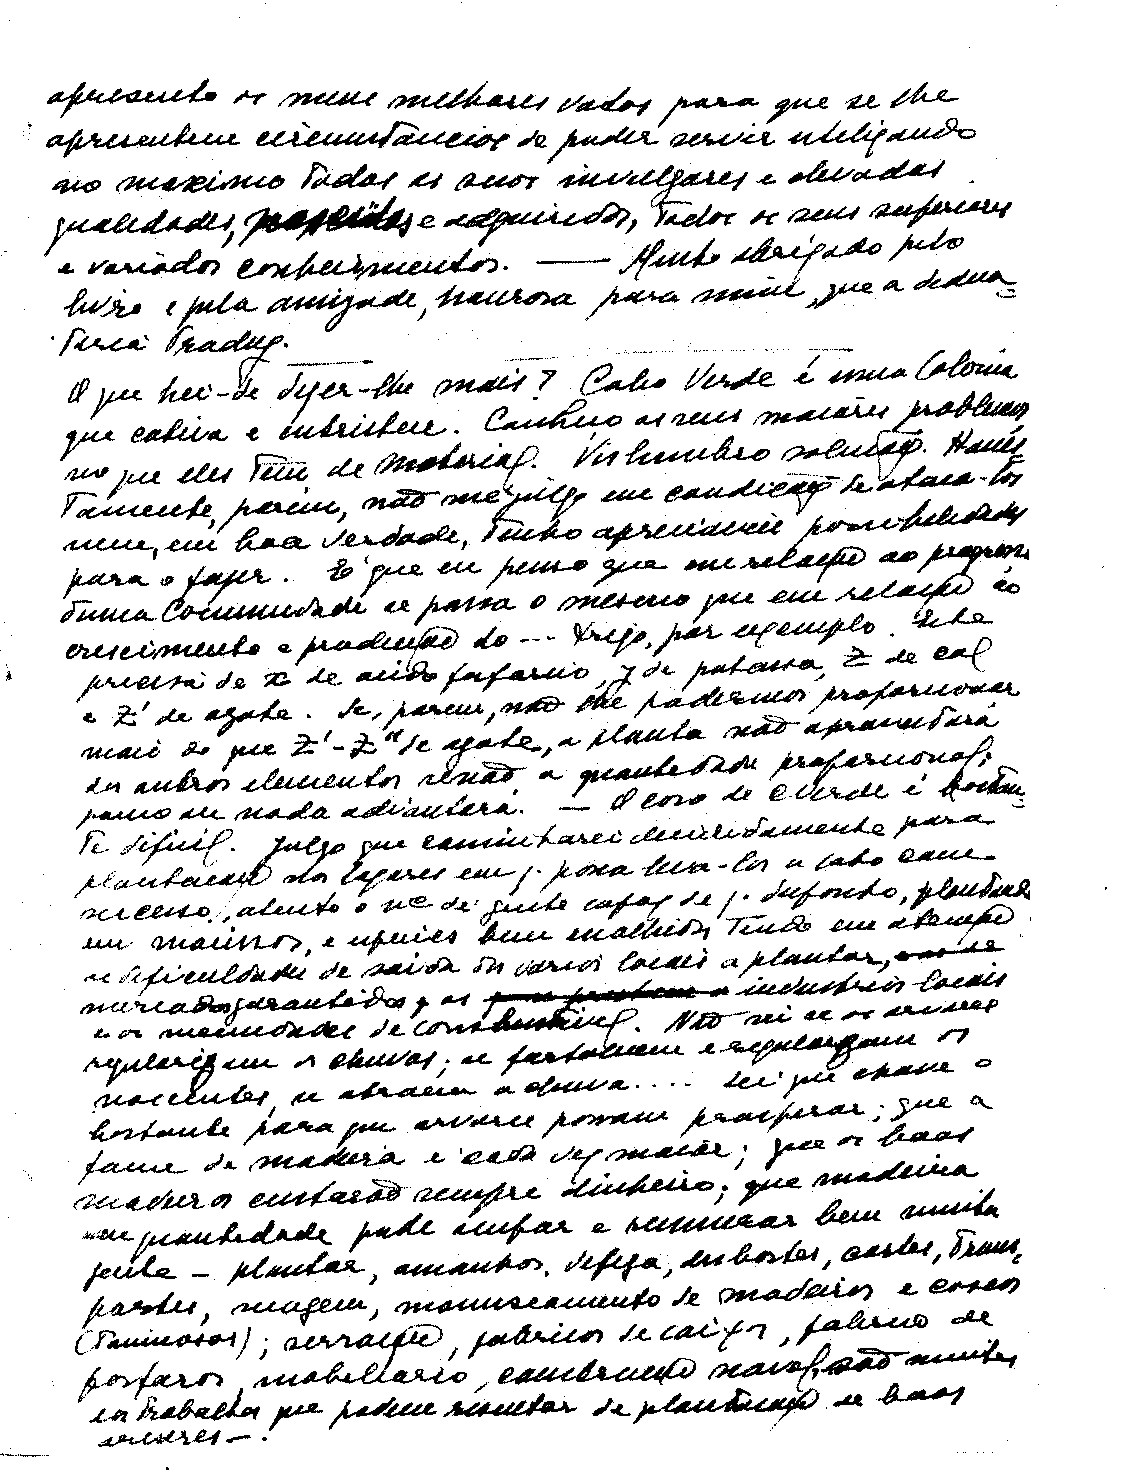 apresento os meus melhores votos para que se lhe
apresentem circunstâncias de poder servir utilizando
ao maximo todas as suas invulgares e elevadas
qualidades, e adquiridas, todos os seus superiores
e variados conhecimentos. — Muito obrigado pelo
livro e pela amizade, honrosa para mim, que a dedica-
toria traduz.
O que hei-de dizer-lhe mais? Cabo Verde é uma Colonia
que cativa e entristece. Conheço os seus maiores problemas
no que eles têm de material. Vislumbro solução. Hones
tamente, porém, não me julgo em condições de ataca-los
nem, em boa verdade, tenho apreciaveis possibilidades
para o fazer. É que eu penso que em relação ao progresso
duma Comunidade se passa o mesmo que em relação ao
crescimento e produção do --- trigo, por exemplo. Este
precisa de x de acido fosforico, y de potassa, Z de cal
e Z' de azote. Se, porém, não lhe podermos proporcionar
mais do que Z'-Z" de azote, a planta não aproveitará
dos outros elementos senão a quantidade proporcional;
pouco ou nada adiantará. — O caso de C. Verde é bastan-
te dificil. Julgo que caminharei decididamente para
plantação nos lugares em q. possa leva-los a cabo com
sucesso, atento o nº de gente capaz de q. disponho, plantando
em macissos, e especies bem escolhidas tendo em atenção
as dificuldades de saida dos varios locais a plantar,
mercados garantidos, as industrias locais
e as necessidades de combustivel. Não sei se as arvores
regularizam as chuvas; se fortalecem e regularizam as
nascentes, se atraem a chuva.... Sei que chove o
bastante para que arvores possam prosperar; que a
fome de madeira é cada vez maior; que as boas
madeiras custarão sempre dinheiro; que madeira
em quantidade pode ocupar e remunerar bem muita
gente – plantar, amanhos, defeza, desbastes, cortes, trans-
portes, seragem, manuseamento de madeiras e cascas
(taninosas); serração, fabricos de caixas, fabrico de
fosforos, mobiliario, construção naval, são muitos
os trabalhos que podem resultar de plantação de boas
arvores —.